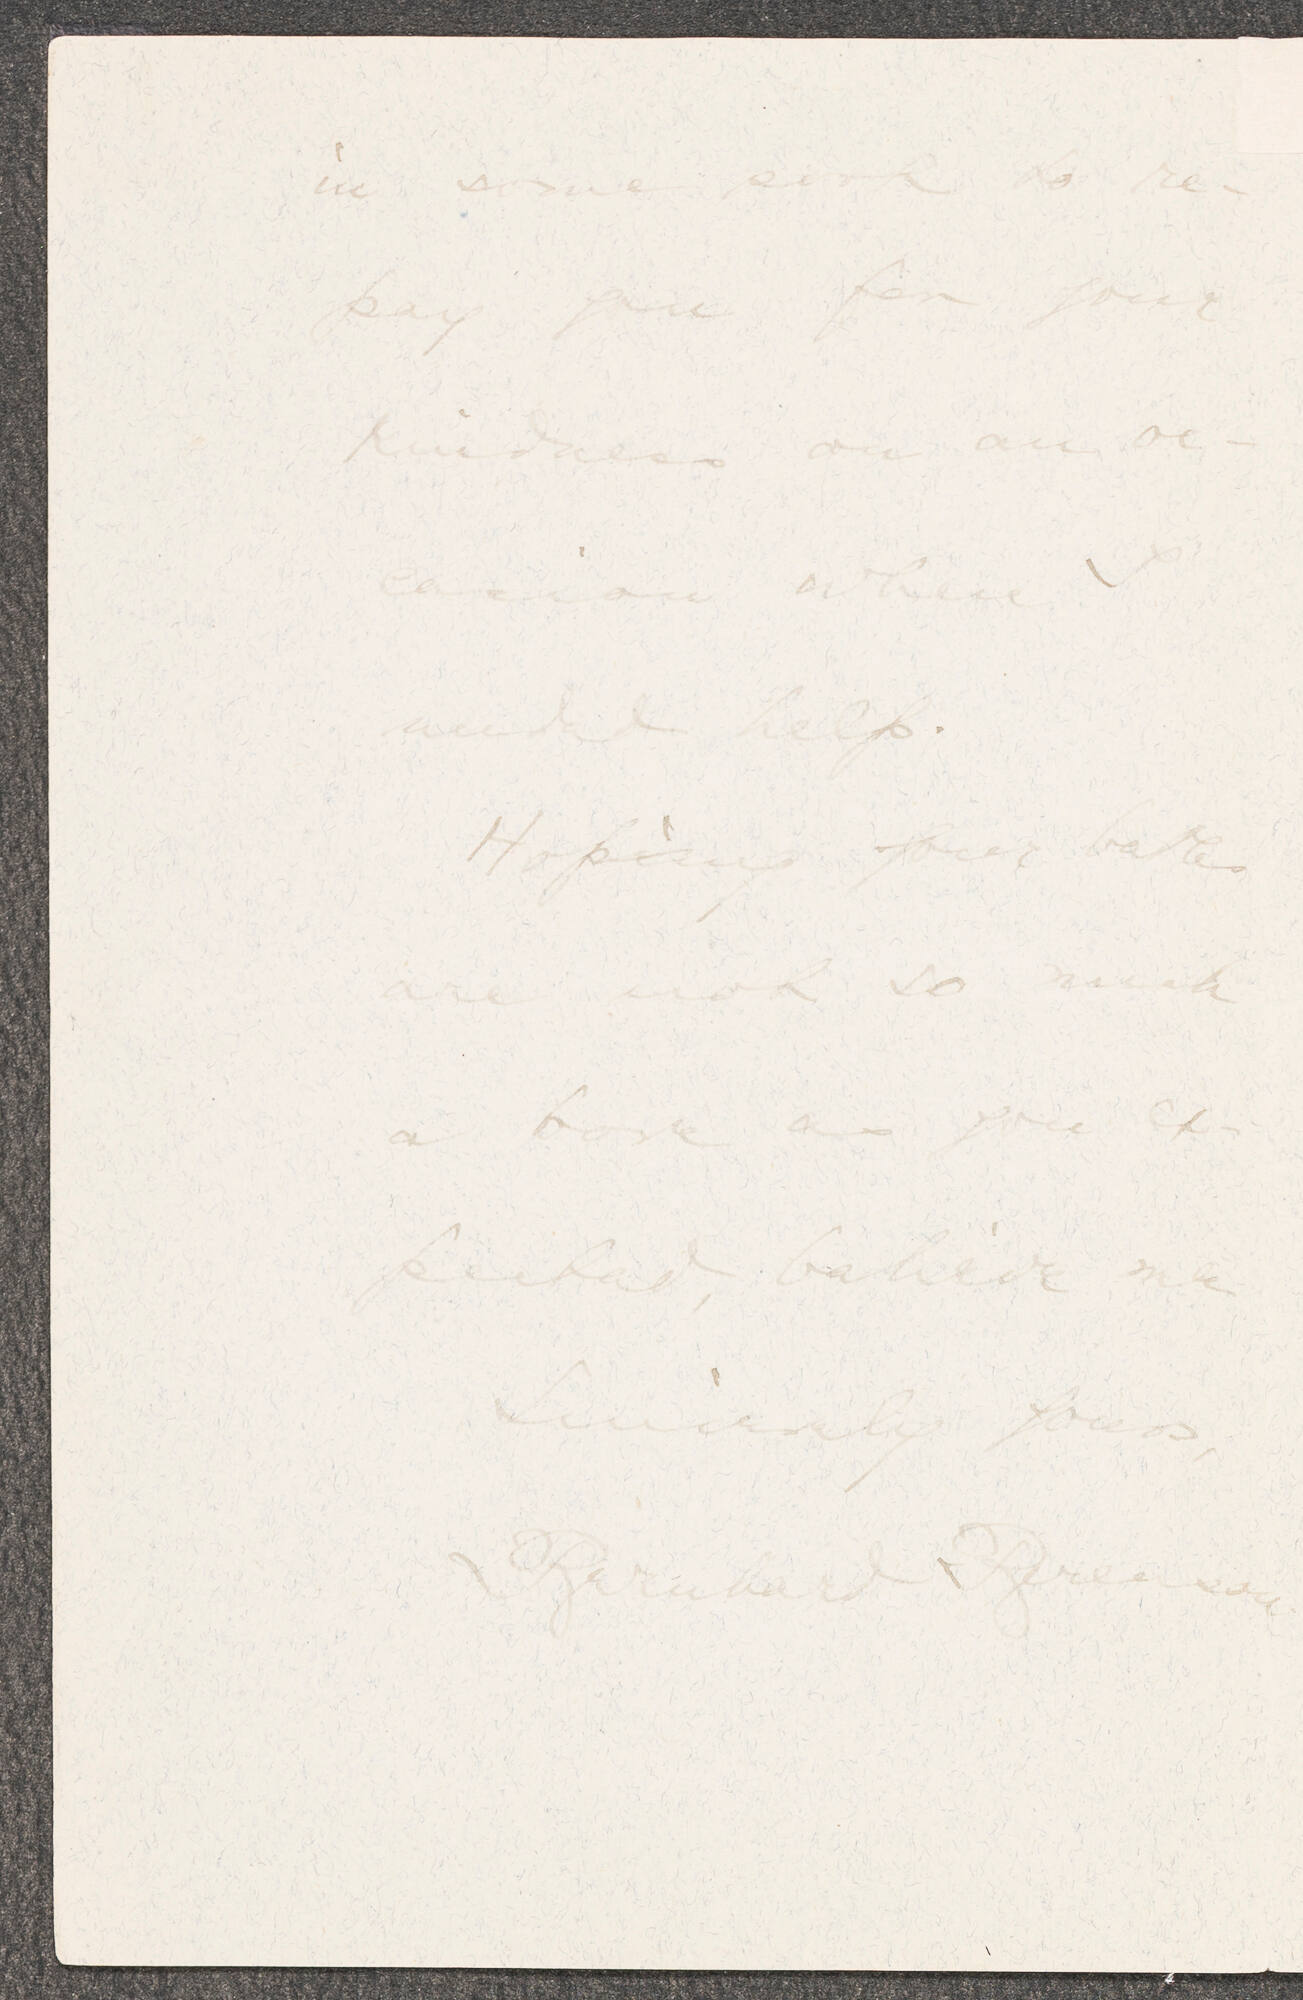 in some part to re-
pay you for your
kindness on an oc-
casion when I
needed help.
Hoping your baths
are not so much
a bore as you ex-
pected, believe me
Sincerely yours,
Bernhard Berenson